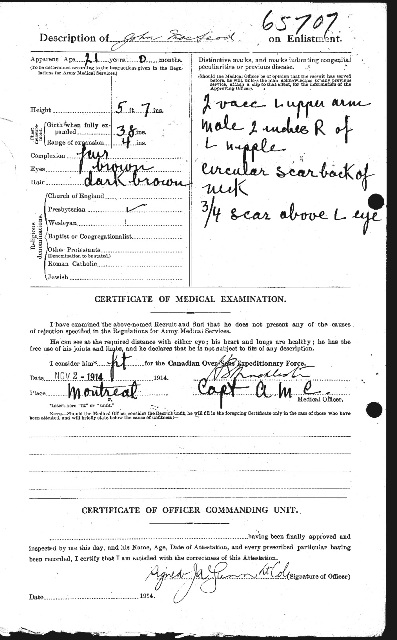 65707
Description of John on Enlistment.
Apparent Age 21 years 0 months.
(To be determined according to the instructions given in the Regulations for Army Medical Services.)
Height 5 ft. 7 ins.
Chest measurement
Girth when fully expanded 38 ins.
Range of expansion 4 ins.
Complexion fair
Eyes brown
Hair dark brown
Religious denominations.
Church of England
Presbyterian ✓
Wesleyan
Baptist or Congregationalist
Other Protestants
(Denomination to be stated.)
Roman Catholic
Jewish
Distinctive marks, and marks indicating congenital
peculiarities or previous disease.
(Should the Medical Officer be of opinion that the recruit has served
before, he will, unless the man acknowledges to any previous
service, attach a slip to that effect, for the information of the
Approving Officer).
2 vacc L upper arm
mole 2 inches R of
L nipple
circular scar back of
neck
3/4 scar above L eye
CERTIFICATE OF MEDICAL EXAMINATION.
I have examined the above-named Recruit and find that he does not present any of the causes
of rejection specified in the Regulations for Army Medical Services.
He can see at the required distance with either eye; his heart and lungs are healthy; he has the
free use of his joints and limbs, and he declares that he is not subject to fits of any description.
I consider him* fit for the Canadian Over-Seas Expeditionary Force.
Date NOV 2 - 1914 1914.
Place Montreal Capt A.M.C.
Medical Officer.
*Insert here "fit" or "unfit."
NOTE.—Should the Medical Officer consider the Recruit unfit, he will fill in the foregoing Certificate only in the case of those who have
been attested, and will briefly state below the cause of unfitness:—
CERTIFICATE OF OFFICER COMMANDING UNIT.
having been finally approved and
inspected by me this day, and his Name, Age, Date of Attestation, and every prescribed particular having
been recorded, I certify that I am satisfied with the correctness of this Attestation.
(Signature of Officer)
Date 1914.